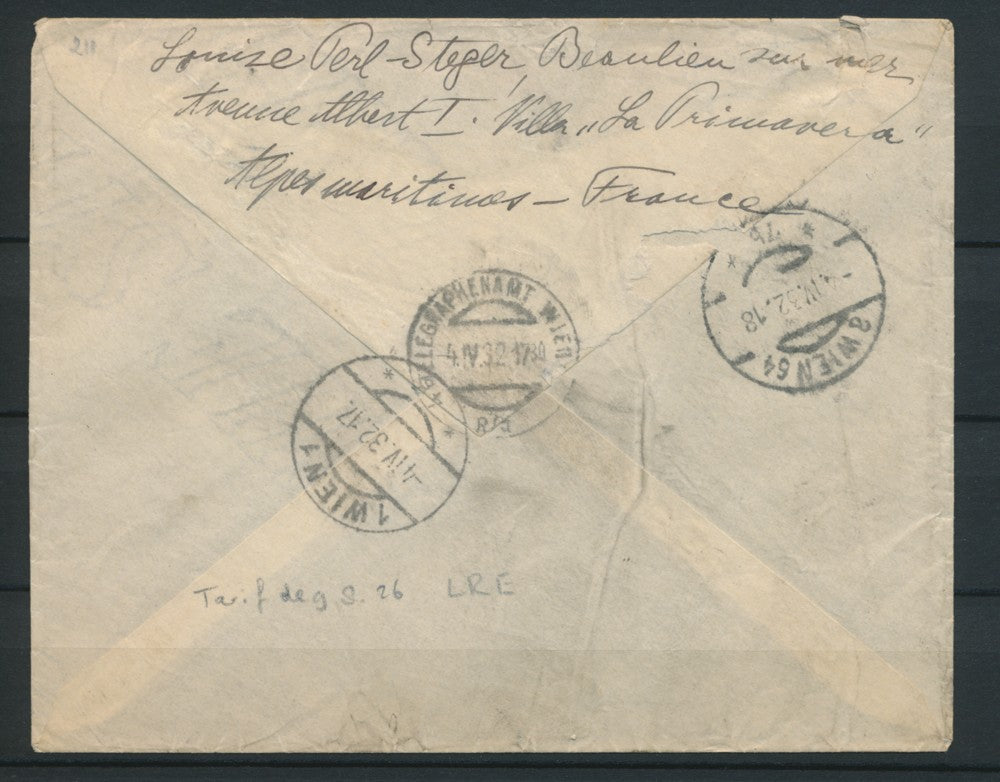 211
Louise Perl-Steger, Beaulieu sur mer
Avenue Albert I. Villa „La Primavera"
Alpes maritimes – France
TELEGRAPHENAMT WIEN
4.IV.32 1730
R/1
* 9Z *
-4.IV.32.18
8 WIEN 64
* *
-4.IV.32.17.
1 WIEN 1
Tarif de 9.8.26 LRE